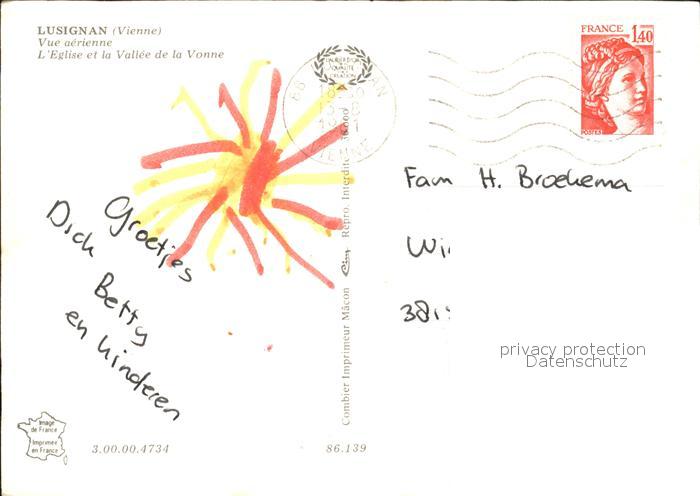 LUSIGNAN (Vienne)
Vue aérienne
L'Eglise et la Vallée de la Vonne
FRANCE 1,40
POSTES
VIENNE
Groetjes
Dick
Betty
en kinderen
Fam H. Broekema
Wi
381
privacy protection
Datenschutz
Combier Imprimeur Mâcon Cim Repro. Interdite 36.000
Image
de France
Imprimée
en France
3.00.00.4734
86.139